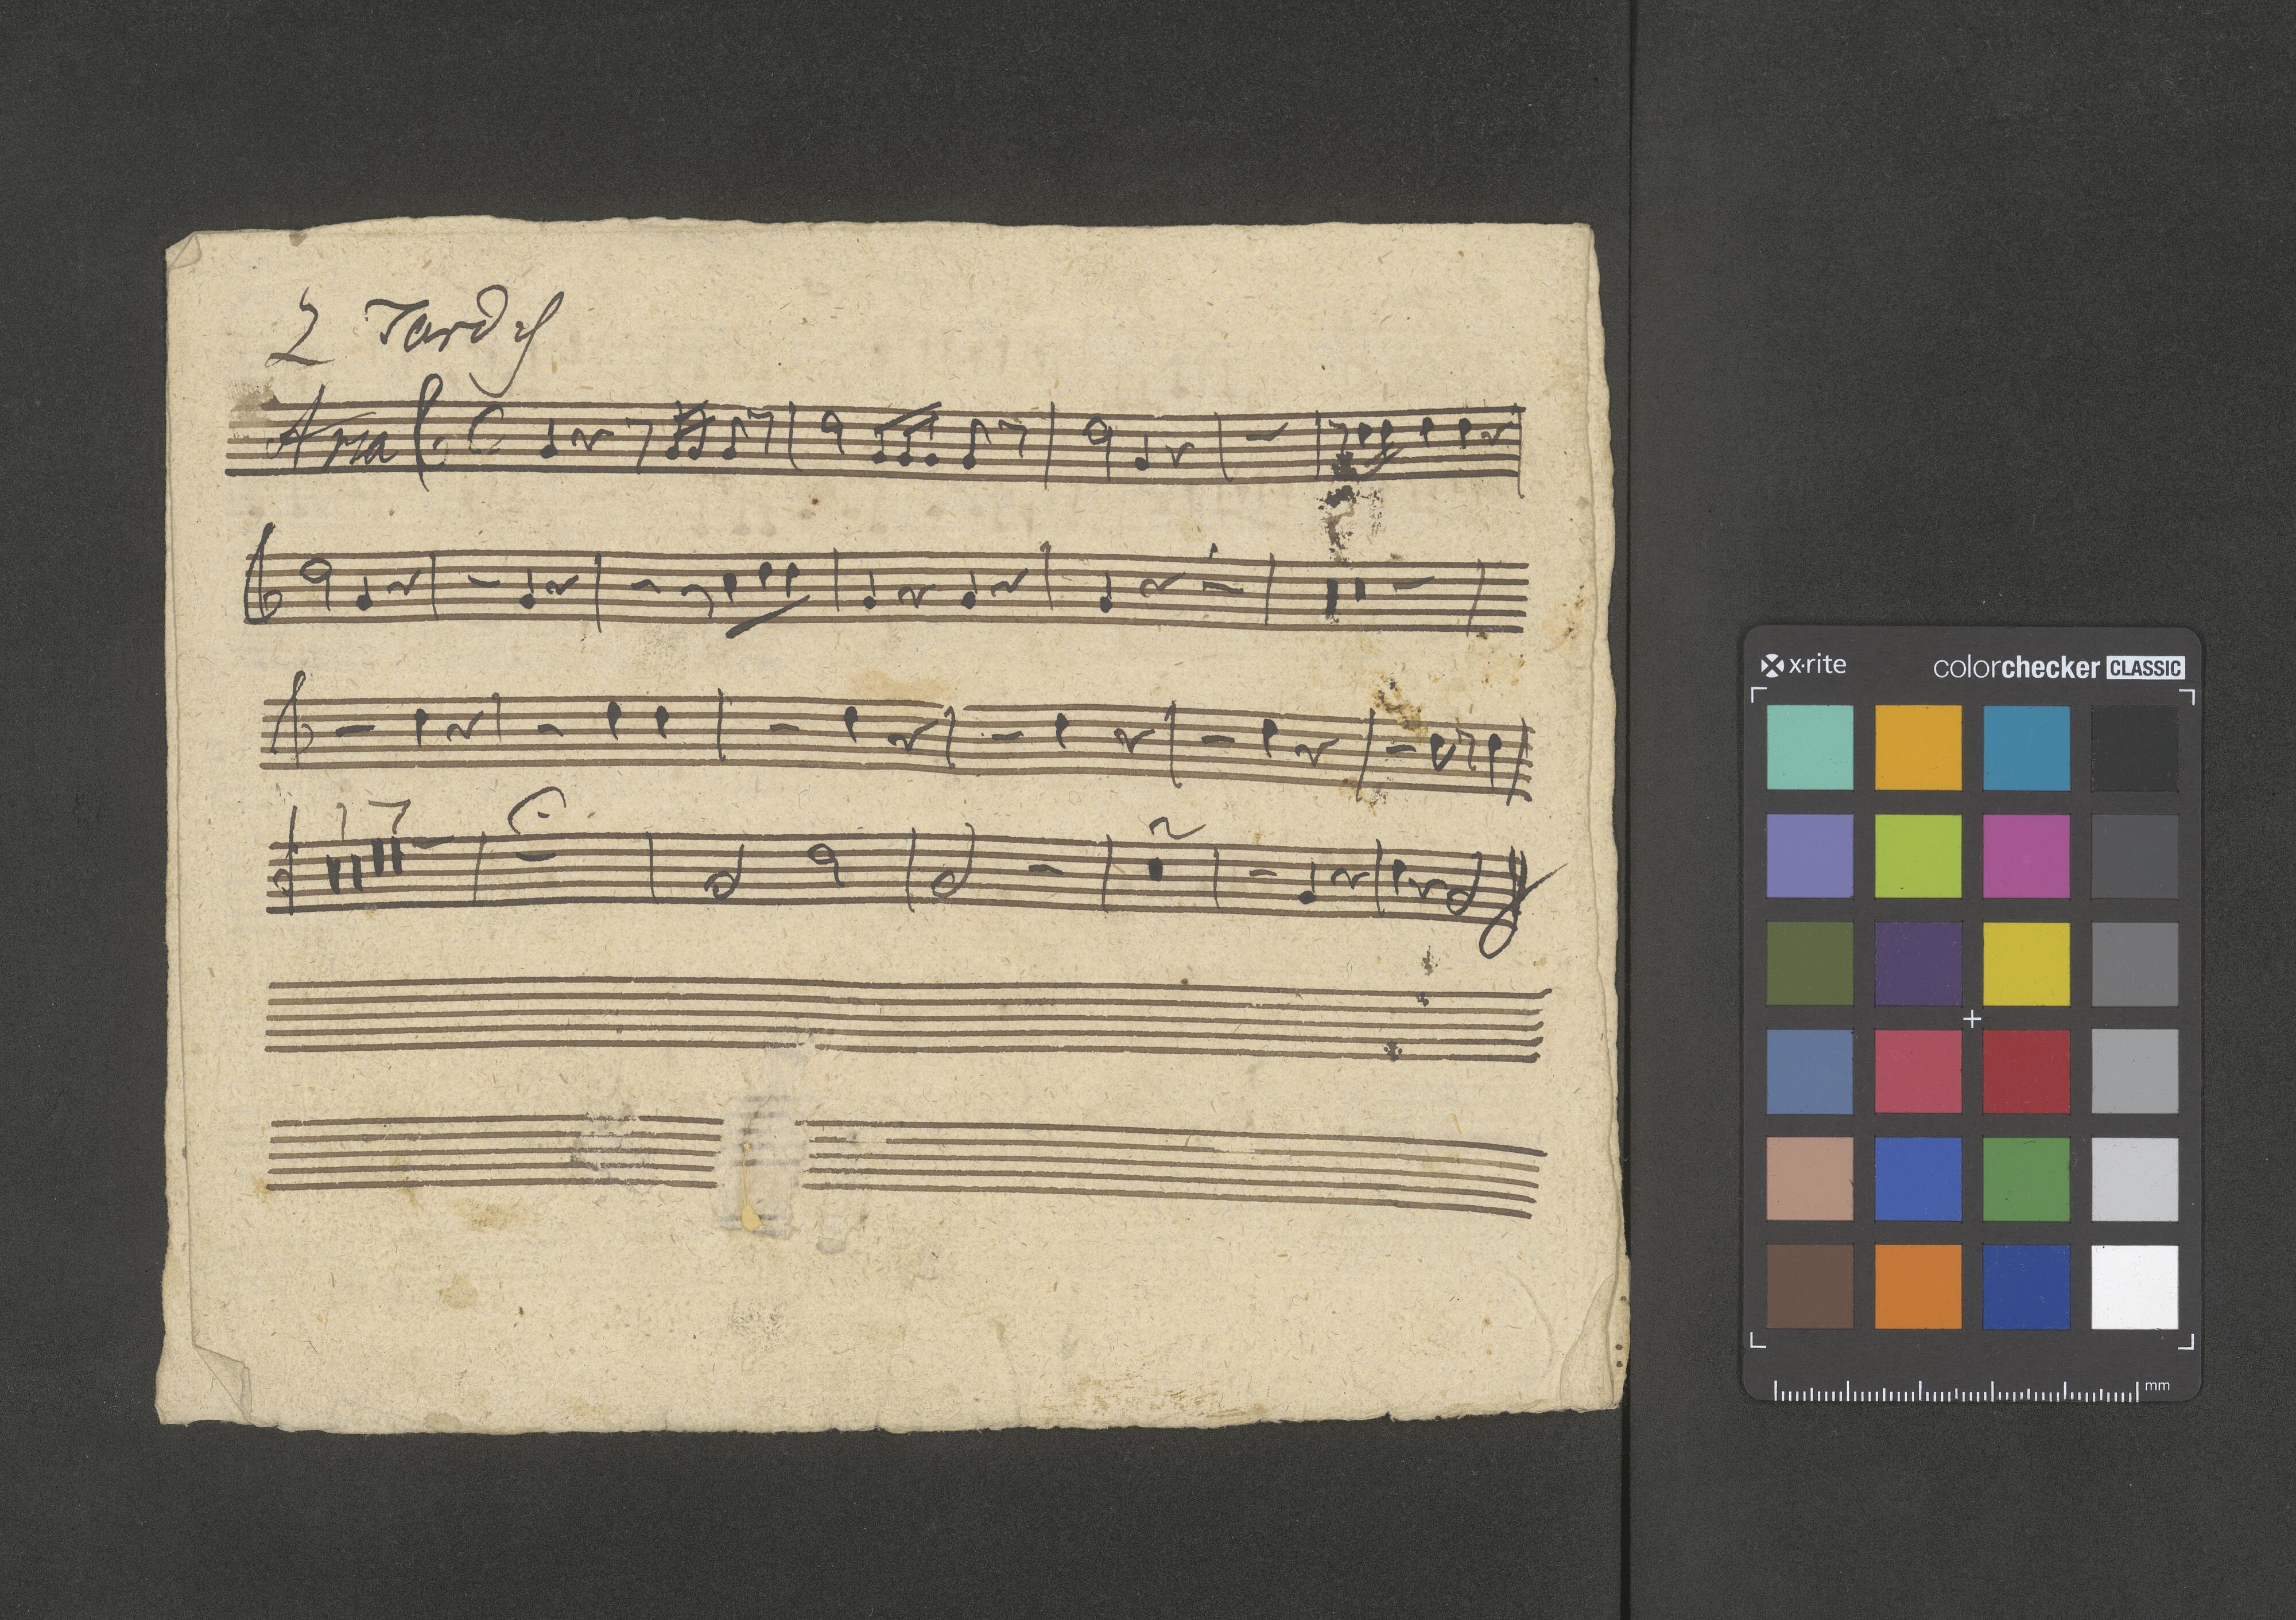 2 Tardy
Aria
17
x·rite colorchecker CLASSIC
mm